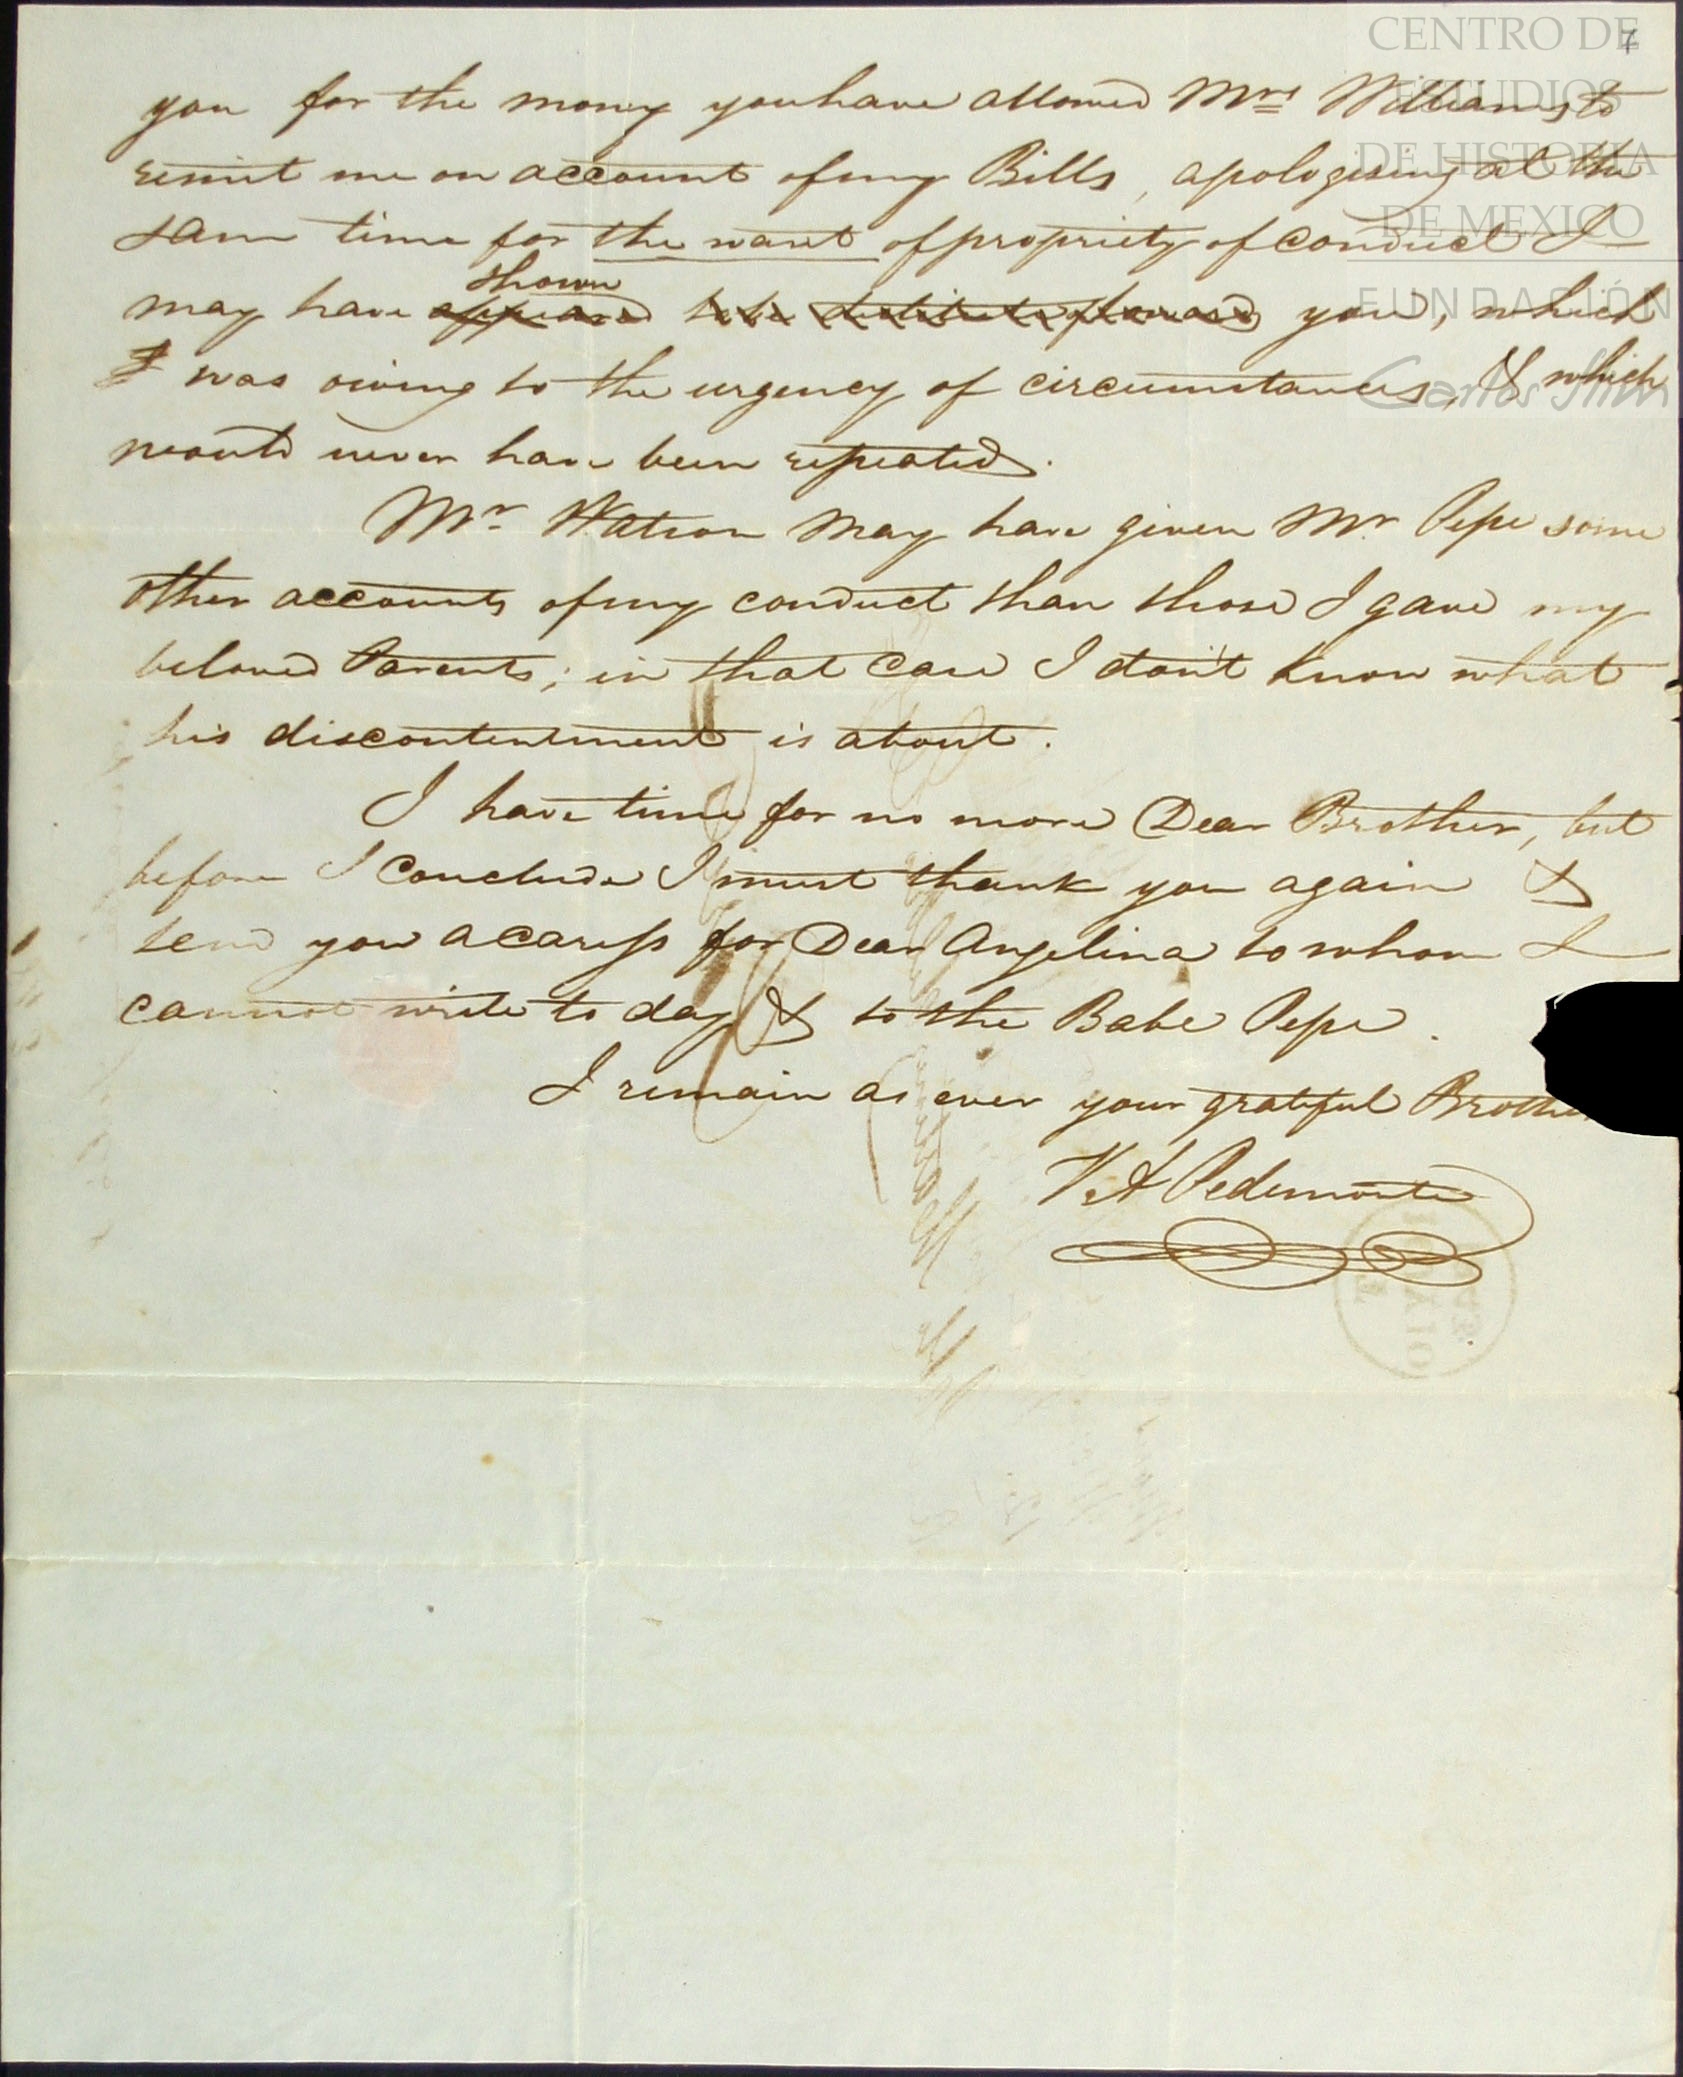 CENTRO DE
ESTUDIOS
DE HISTORIA
DE MEXICO
FUNDACIÓN
Carlos Slim
7
you for the money you have allowed Mrs Williams to
remit me on account of my Bills, apologising at the
same time for the want of propriety of conduct I
shown
may have appeared to be destitute of toward you, which
I was owing to the urgency of circumstances, & which
would never have been repeated.
Mr Watson may have given Mr Pepe some
other accounts of my conduct than those I gave my
beloved Parents; in that case I don't know what
his discontentment is about.
I have time for no more Dear Brother, but
before I conclude I must thank you again &
send you a caress for Dear Angelina to whom I
cannot write to day & to the Babe Pepe.
I remain as ever your grateful Brother
V. A Pedemonte